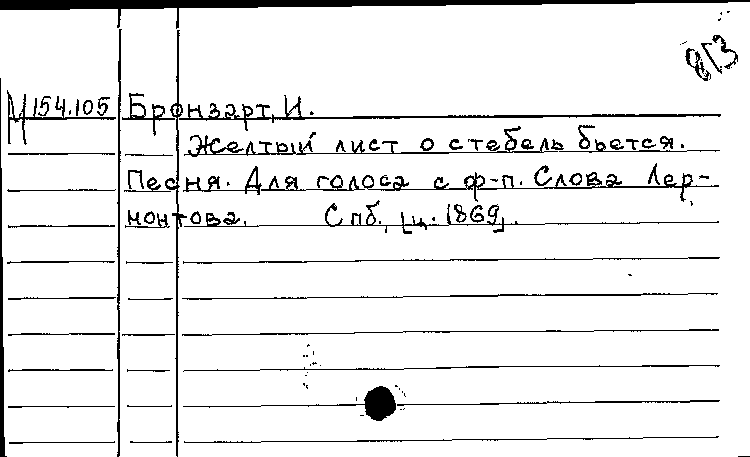 8/3
М 154.105 Бронзарт, И.
Желтый лист о стебель бьется.
Песня. Для голоса с ф-п. Слова Лер-
монтова. Спб., [ц. 1869].